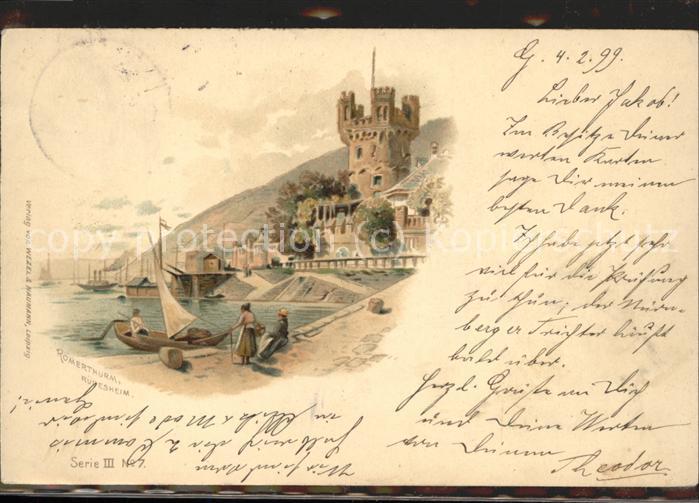 G. 4.2.99.
Lieber Jakob!
Im Besitze Deiner
werten Karten
sage Dir meinen
besten Dank.
Ich habe jetzt sehr
viel für die Prüfung
zu thun; der Nürn-
berger Trichter läuft
bald über.
Herzl. Grüße an Dich
und Deine Werten
von Deinem
Theodor
Verlag von WEZEL & NAUMANN, Leipzig
RÖMERTHURM,
RÜDESHEIM.
Serie III No 7.
copyright protection Kopierschutz